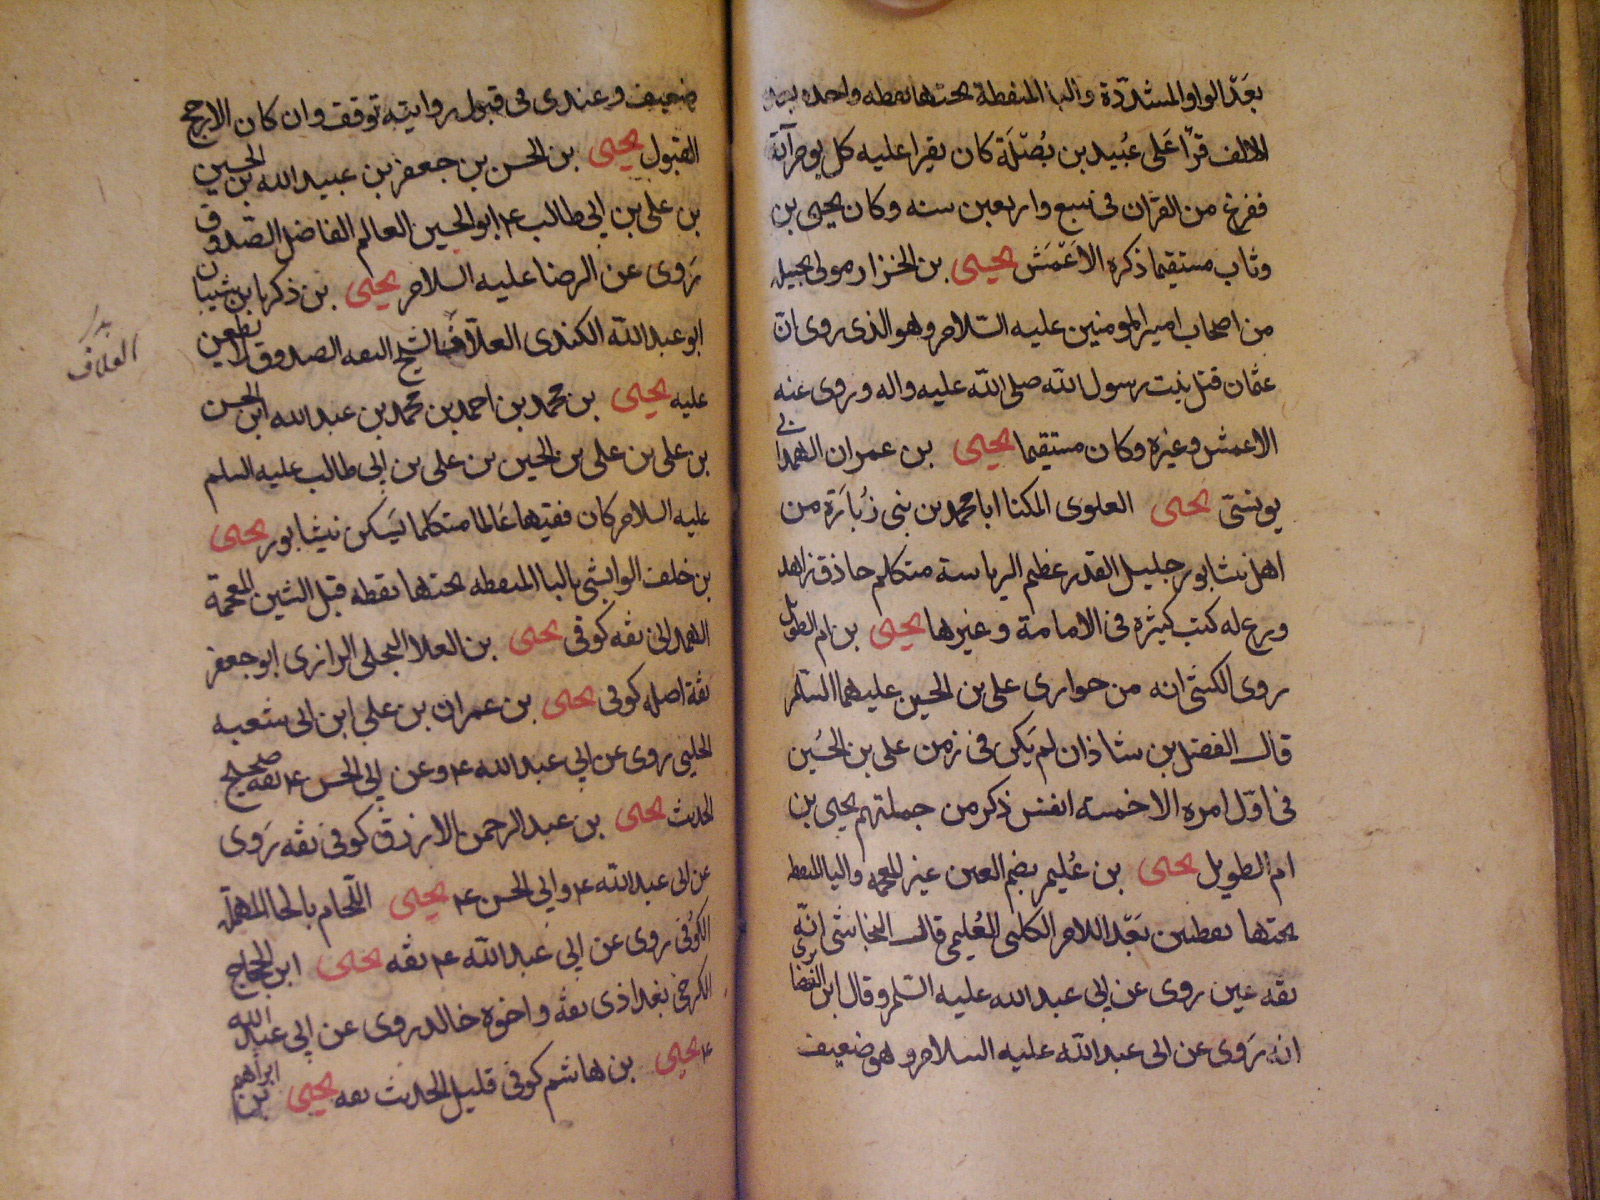 بعَدَ الواو المشدّدة والبا المنقطة تحتها نقطه واحده بعد
الالف قرأ عَلى عُبيد بن نُضَيلَة كان يقرا عليه كل يوم آية
ففرغ من القران فى سبع واربعين سنه وكان يحيى بن
وثاب مستقيما ذكره الاَعْمَش يحيى بن الخزار مولى بجيله
من اصحاب امير المومنين عليه السّلام وهو الذى روى انّ
عثمان قتل بنت رسول الله صلى الله عليه واله وروى عنه
الاعمش وغيره وكان مستقيما يحيى بن عمران الهمدانى
يونسىّ يحيى العلوى المكنا ابا محمد من بنى زُبارَة من
اهل نيشابور جليل القدر عظيم الرياسة متكلم حاذق زاهد
ورع له كتب كثيره فى الامامة وغيرها يحيى بن ام الطويل
روى الكشى انه من حوارى على بن الحسين عليهما السّلم
قال الفضل بن شاذان لم يَكن فى زمن على بن الحُسَين
فى اوّل امره الا خمسه انفس ذكر من جملتهم يحيى بن
ام الطويل يحيى بن عُليم بضم العين غير المعجمه واليا المنقطه
تحتها نقطتين بَعَد اللام الكلبى العُليمى قال النجاشى انّه
ثقه عين روى عن ابى عبد الله عليه السّلم وقال ابن الغضايرى
انه رَوى عن ابى عبد الله عليه السلام وهو ضعيف
ضعيف وعندى فى قبول روايته توقف وان كان الارجح
القبول يحيى بن الحسن بن جعفر بن عبيد الله بن الحسين
بن على بن ابى طالب ۴ ابو الحسين العالم الفاضل الصّدوق
رَوى عن الرضا عليه السلام يحيى بن زكريا بن شيبان
ابو عبد الله الكندى العلّاف الشيخ الثقه الصدوق لا يطعن
عليه يحيى بن محمد بن احمد بن محمد بن عبد الله ابن الحسن
بن على بن على بن الحسين بن على بن ابى طالب عليه السلم
عليه السلام كان فقيها عَالما متكلما يَسكن نيشابور يحيى
بن خلف الوابشى بالبا المنقطه تحتها نقطه قبل الشين المعجمة
الهمدانى ثقه كوفى يحيى بن العلا البجلى الرازى ابو جعفر
ثقة اصله كوفى يحيى بن عمران بن على ابن ابى شعبه
الحلبى روى عن ابى عبد الله ۴ وعن ابى الحسن ۴ ثقه صحيح
الحديث يحيى بن عبد الرحمن الازرق كوفى ثقه رَوى
عن ابى عبد الله ۴ وابى الحسن ۴ يحيى اللّحام بالحا المهملة
الكوُفى روى عن ابى عبد الله ۴ ثقه يحيى ابن الحجاج
الكرخى بغداذى ثقه واخوه خالد روى عن ابى عبد الله
۴ يحيى بن هاشم كوفى قليل الحديث ثقه يحيى بن ابراهيم
العلاف